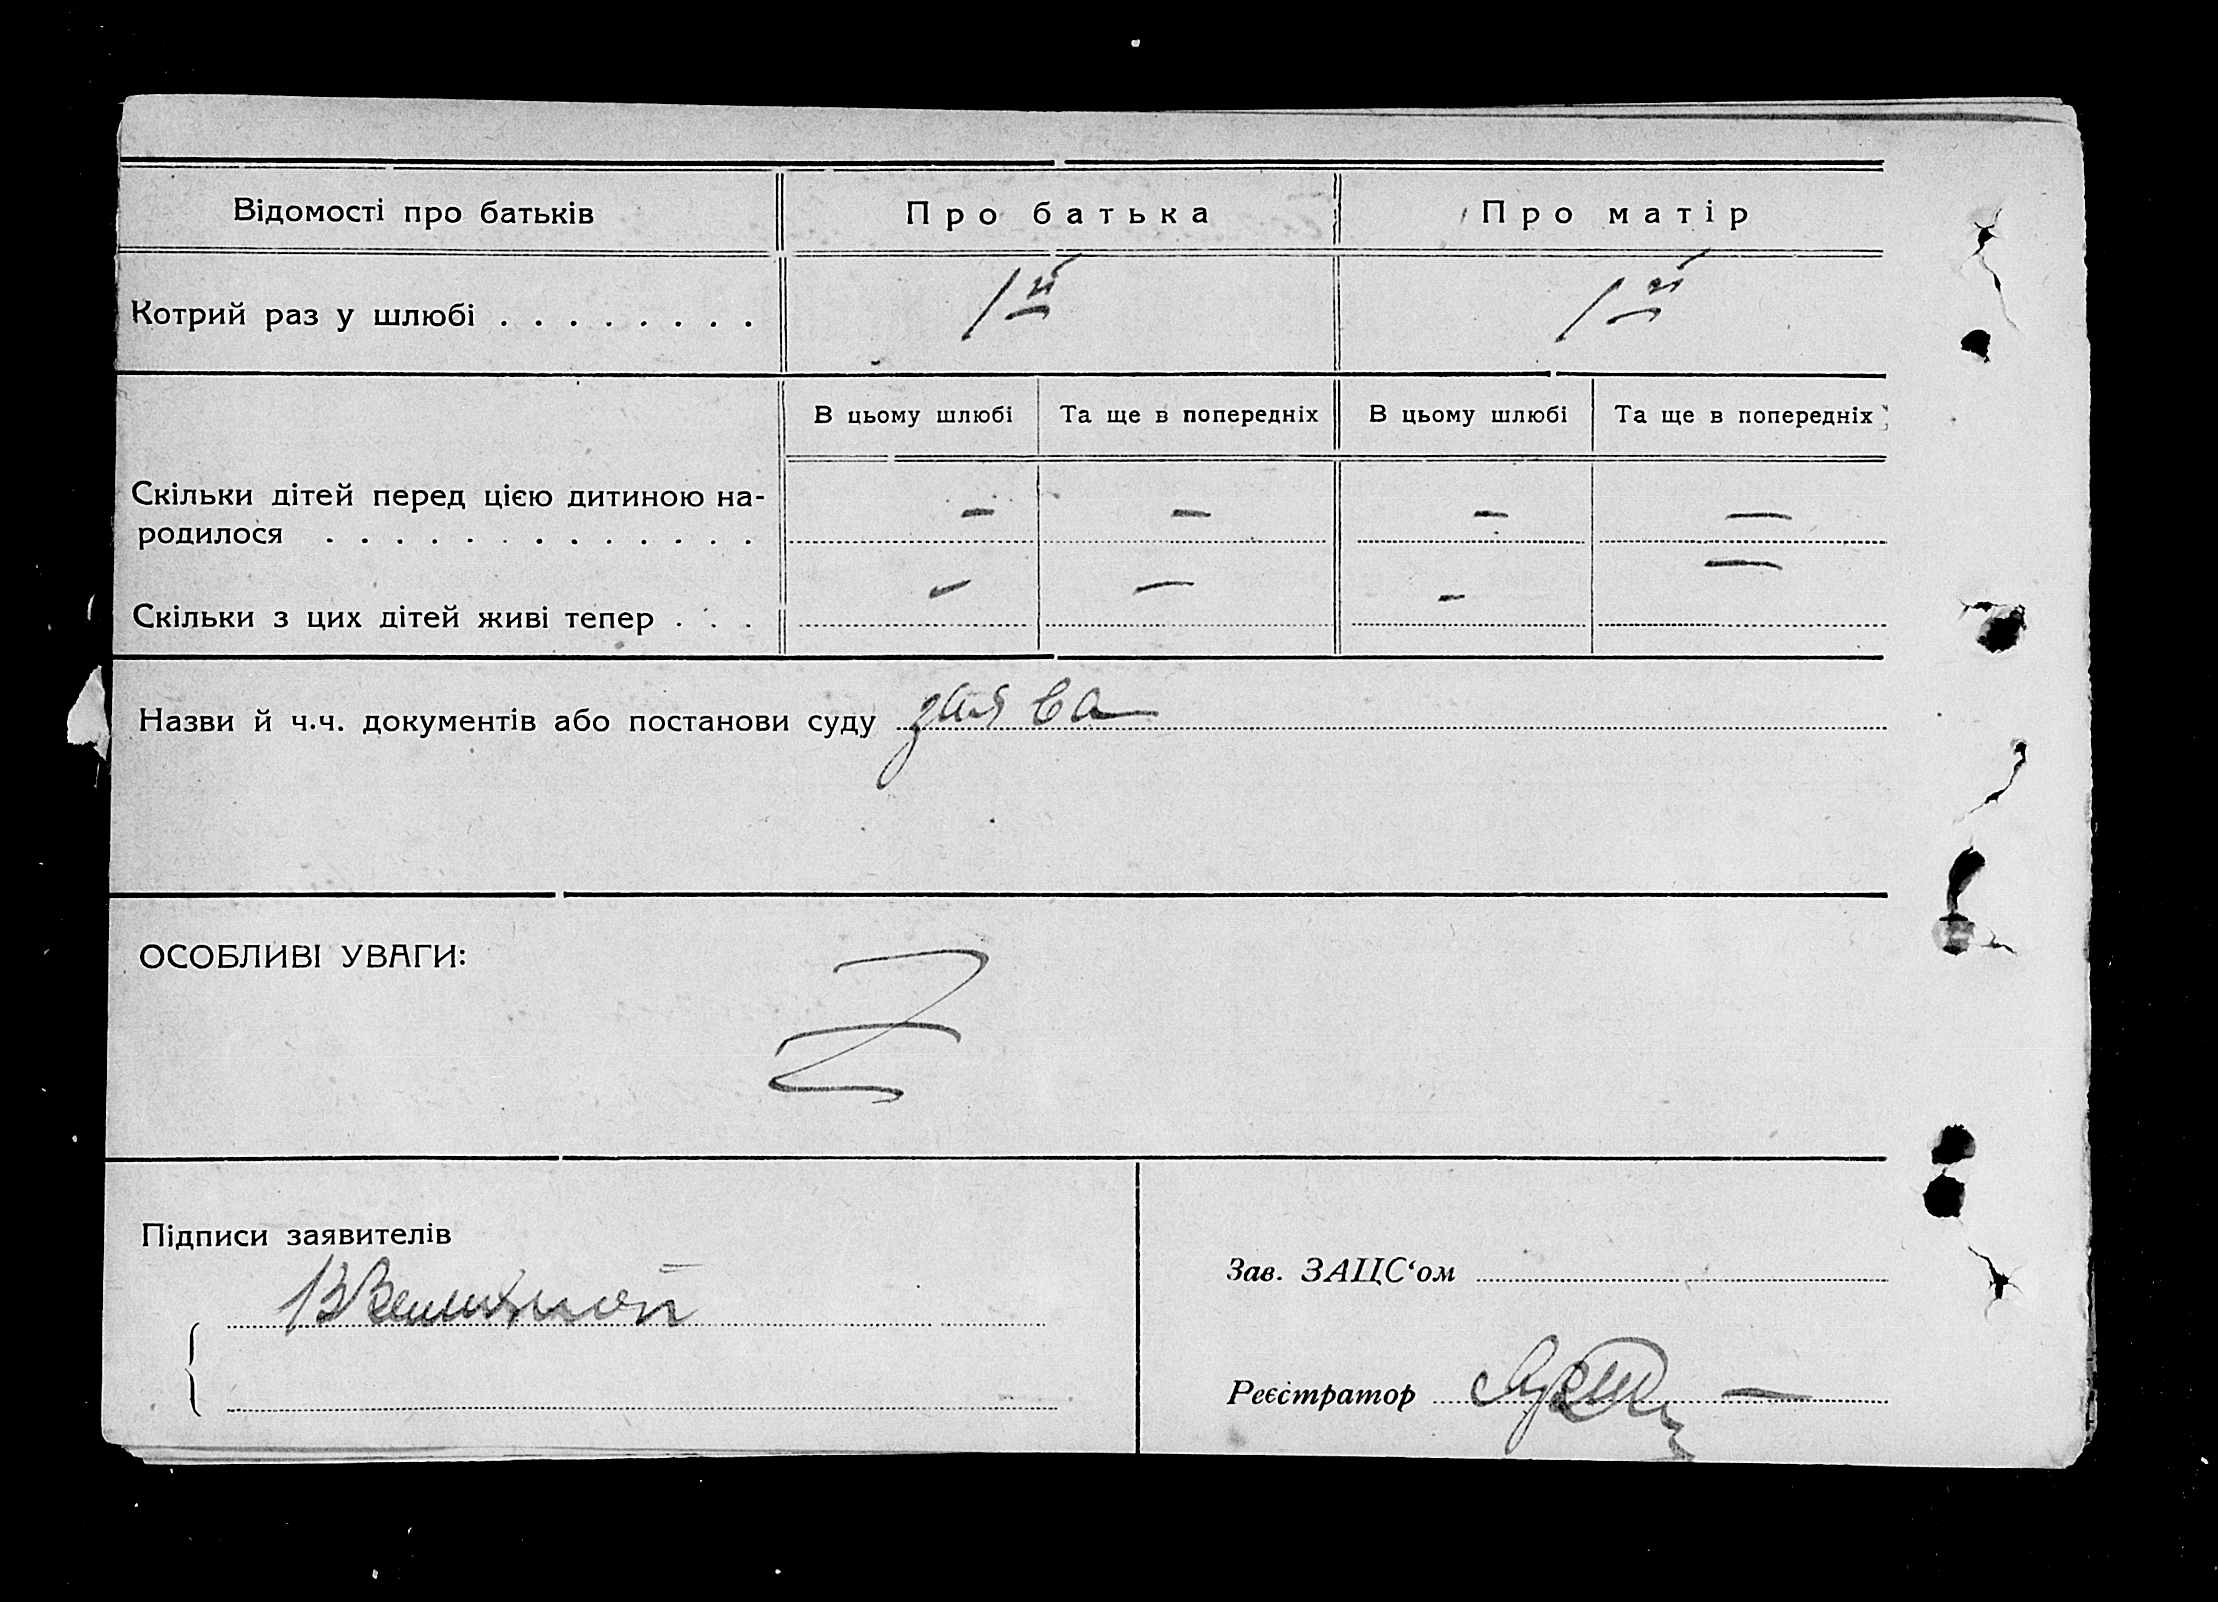 Відомості про батьків Про батька Про матір
Котрий раз у шлюбі . . . . . . . . 1й 1й
В цьому шлюбі Та ще в попередніх В цьому шлюбі Та ще в попередніх
Скільки дітей перед цією дитиною на- — — — —
родилося . . . . . . . . . . . . .
Скільки з цих дітей живі тепер . . . — — — —
Назви й ч.ч. документів або постанови суду заява
ОСОБЛИВІ УВАГИ:
Підписи заявителів
Зав. ЗАЦС‘ом
Реєстратор